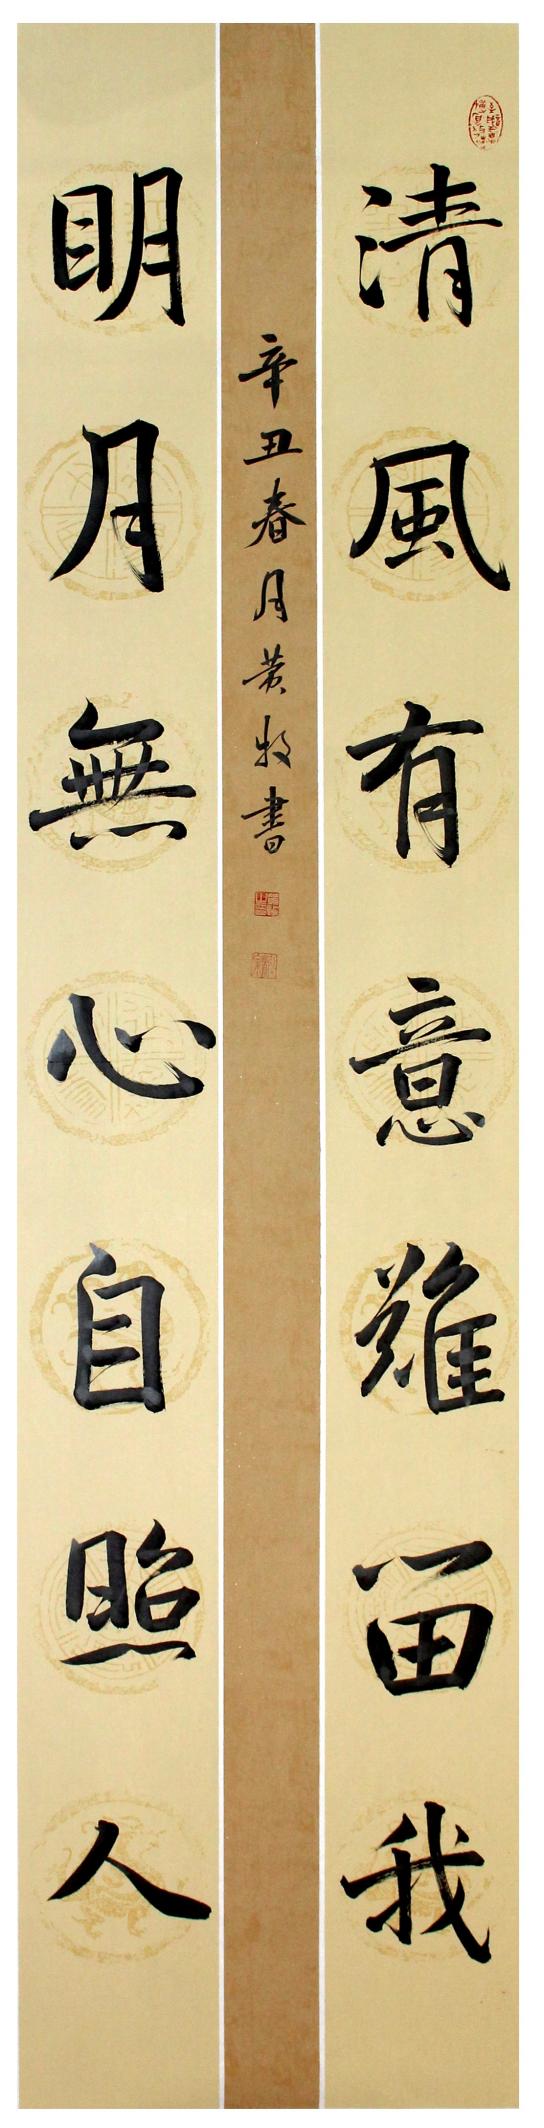 清風有意難留我
明月無心自照人
辛丑春月黄牧書